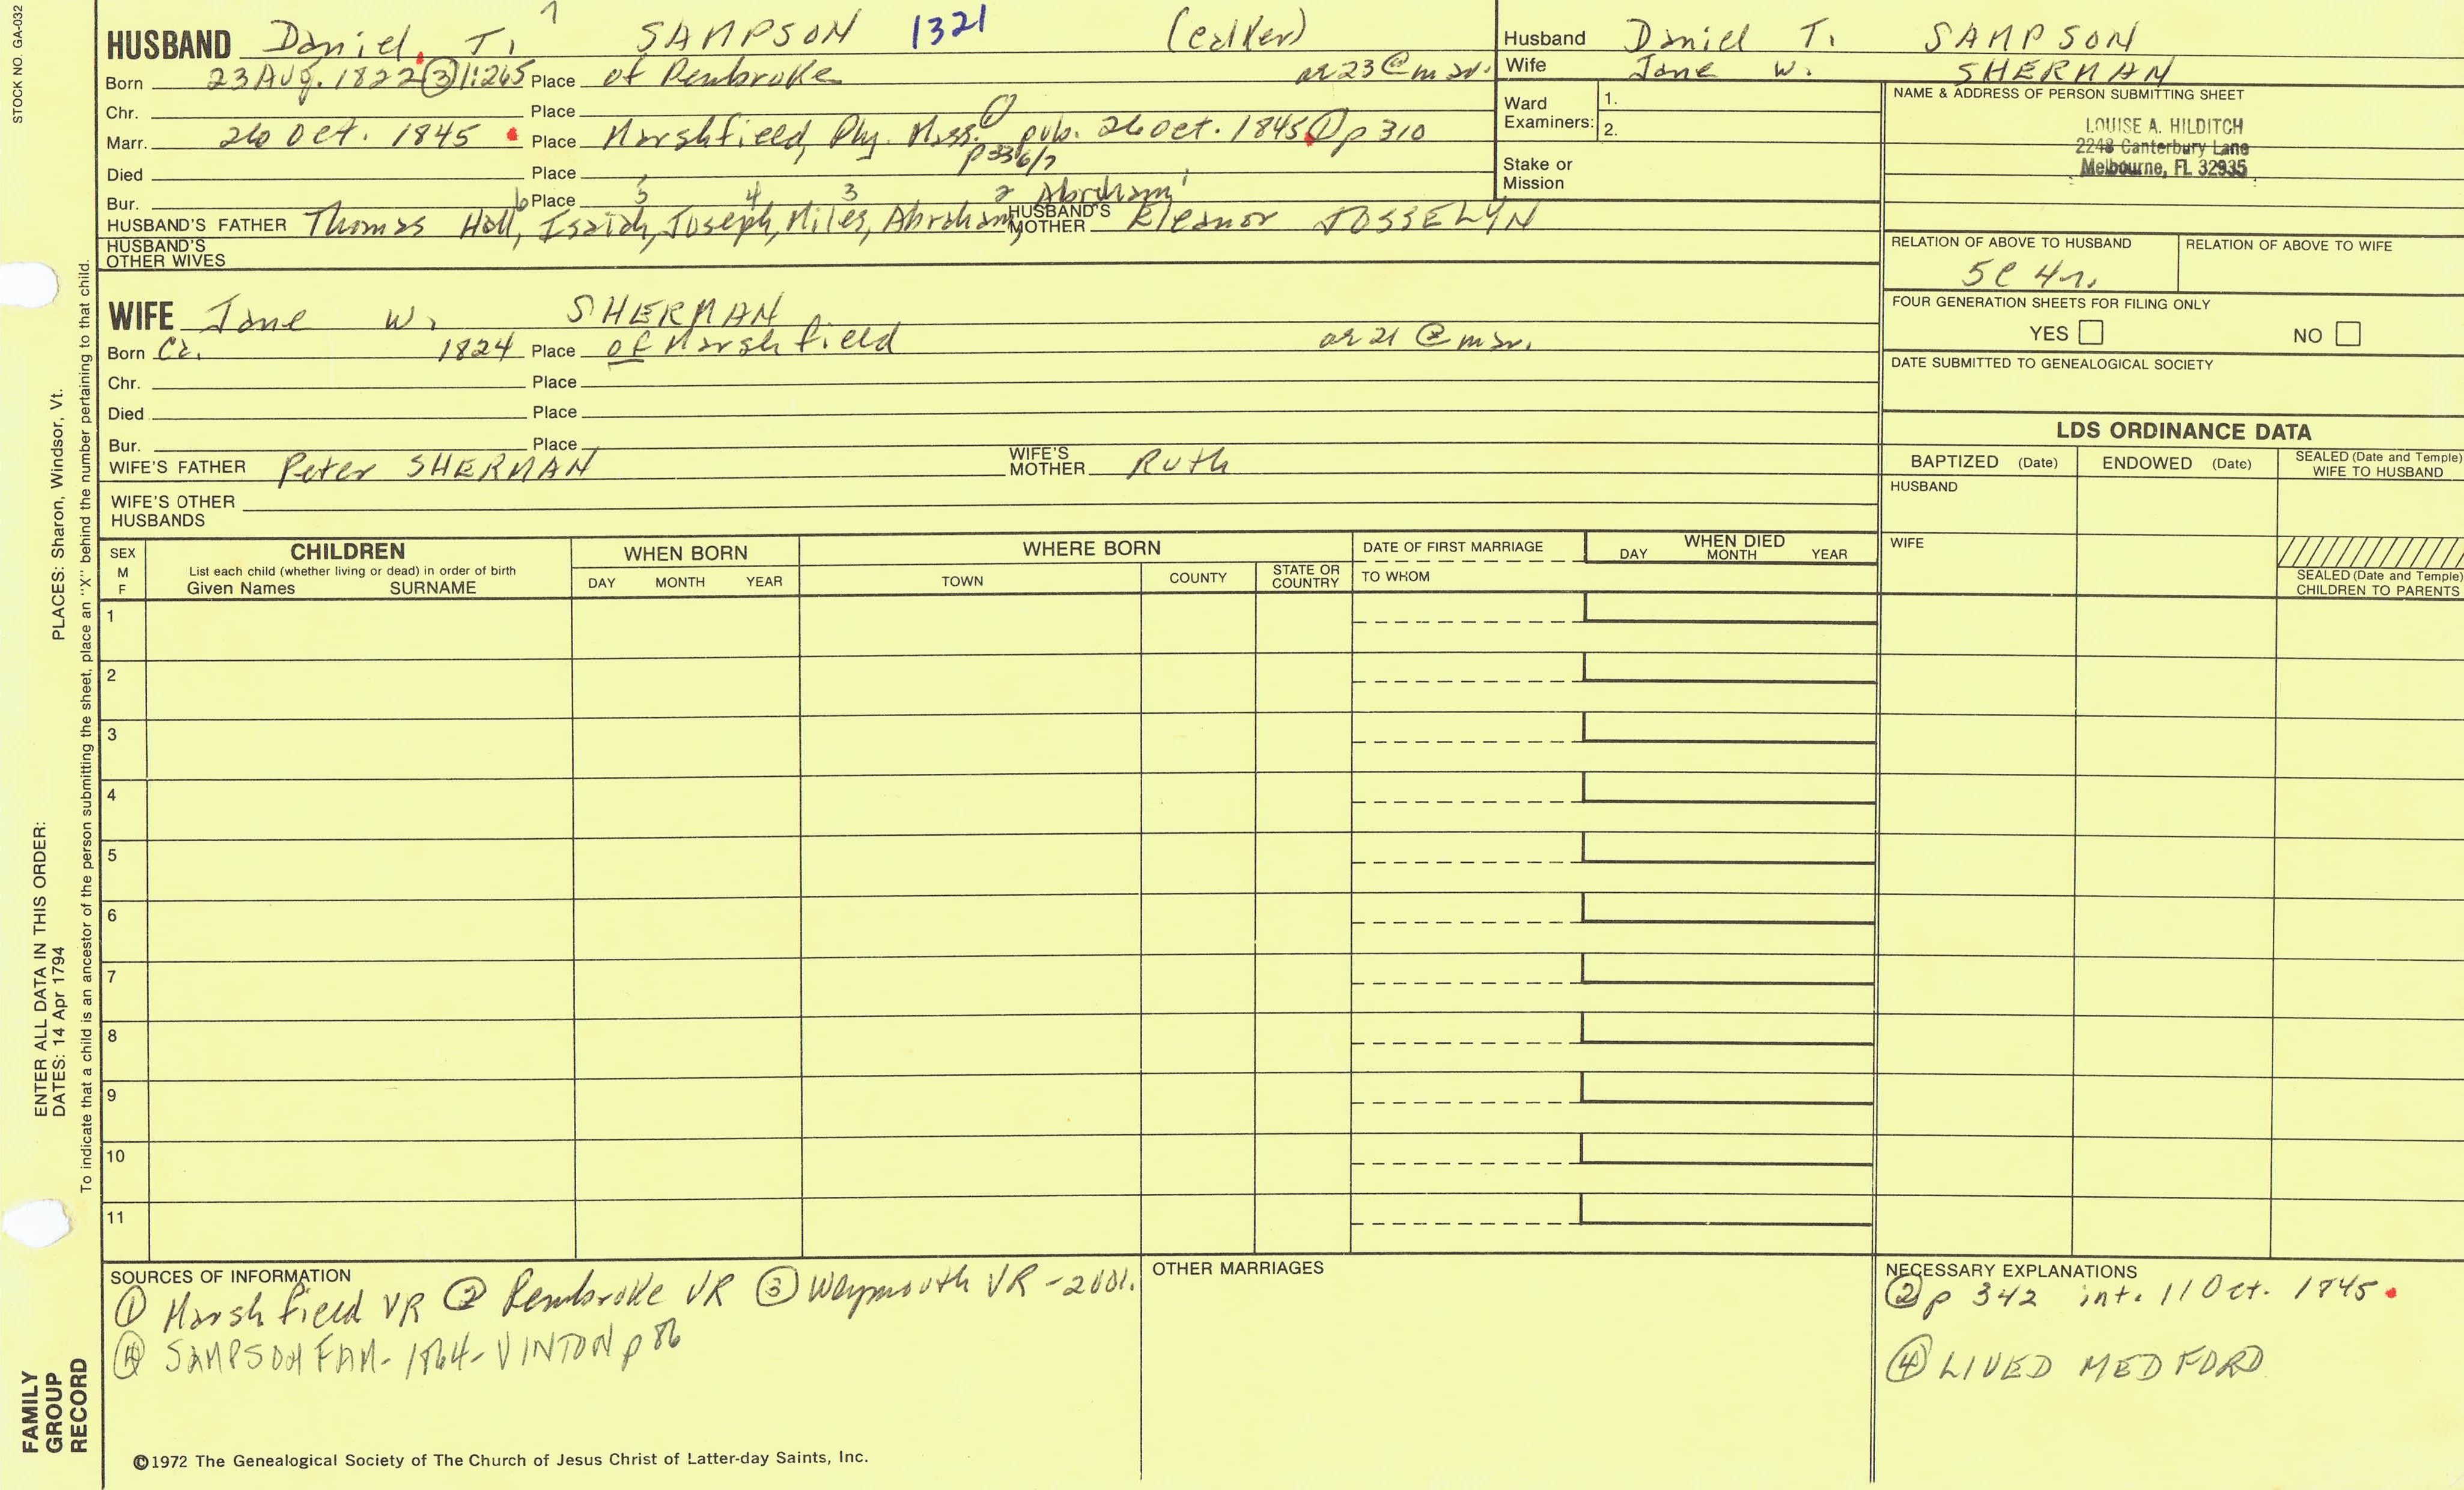 STOCK NO. GA-032
7
HUSBAND Daniel T. SAMPSON 1321 (calker)
Born 23 Aug. 1822 ③ 1:265 Place of Pembroke ae 23 @ mar.
Chr. Place
Marr. 26 Oct. 1845 Place Marshfield, Ply. Mass. ① pub. 26 Oct. 1845 ① p 310
p 336/7
Died Place
Bur. Place
6 5 4 3 2 Abraham 1
HUSBAND'S FATHER Thomas Hall, Isaiah, Joseph, Miles, Abraham, HUSBAND'S MOTHER Eleanor JOSSELYN
HUSBAND'S OTHER WIVES
WIFE Jane W. SHERMAN
Born Ca. 1824 Place of Marshfield ae 21 @ mar.
Chr. Place
Died Place
Bur. Place
WIFE'S FATHER Peter SHERMAN WIFE'S MOTHER Ruth
WIFE'S OTHER HUSBANDS
Husband Daniel T. SAMPSON
Wife Jane W. SHERMAN
Ward Examiners: 1.
2.
Stake or Mission
NAME & ADDRESS OF PERSON SUBMITTING SHEET
LOUISE A. HILDITCH
2248 Canterbury Lane
Melbourne, FL 32935
RELATION OF ABOVE TO HUSBAND RELATION OF ABOVE TO WIFE
5C 4r.
FOUR GENERATION SHEETS FOR FILING ONLY
YES NO
DATE SUBMITTED TO GENEALOGICAL SOCIETY
LDS ORDINANCE DATA
BAPTIZED (Date) ENDOWED (Date) SEALED (Date and Temple) WIFE TO HUSBAND
HUSBAND
WIFE
SEALED (Date and Temple) CHILDREN TO PARENTS
SEX M F
CHILDREN
List each child (whether living or dead) in order of birth
Given Names SURNAME
WHEN BORN
DAY MONTH YEAR
WHERE BORN
TOWN COUNTY STATE OR COUNTRY
DATE OF FIRST MARRIAGE
TO WHOM
WHEN DIED
DAY MONTH YEAR
1
2
3
4
5
6
7
8
9
10
11
SOURCES OF INFORMATION
① Marshfield VR ② Pembroke VR ③ Weymouth VR - 2vol.
④ SAMPSON FAM - 1864 - VINTON p 86
OTHER MARRIAGES
NECESSARY EXPLANATIONS
② p 342 int. 11 Oct. 1845
④ LIVED MEDFORD
©1972 The Genealogical Society of The Church of Jesus Christ of Latter-day Saints, Inc.
FAMILY GROUP RECORD
ENTER ALL DATA IN THIS ORDER:
DATES: 14 Apr 1794
PLACES: Sharon, Windsor, Vt.
To indicate that a child is an ancestor of the person submitting the sheet, place an "X" behind the number pertaining to that child.